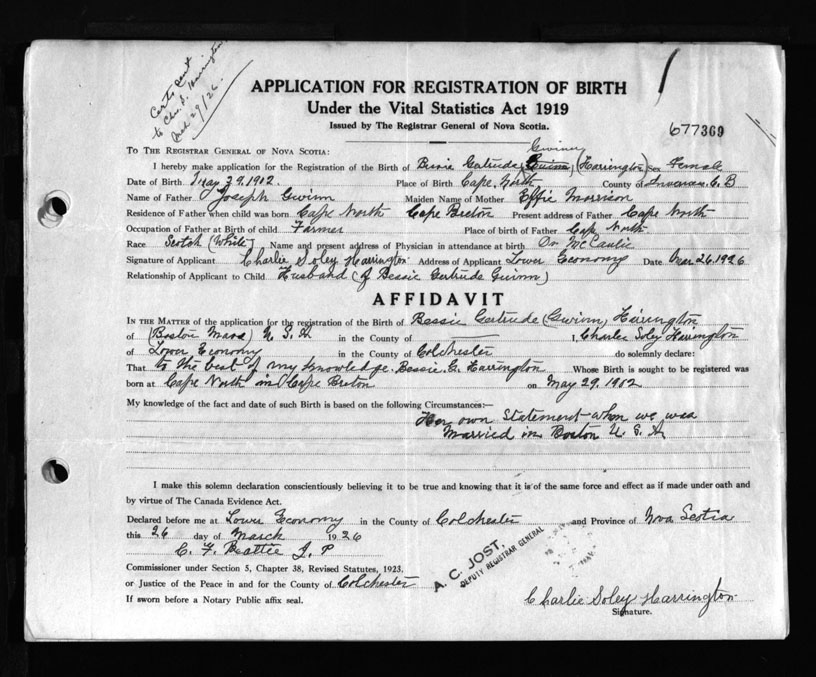 Certs sent
to Chas. S. Harrington
Mch 29/26.
APPLICATION FOR REGISTRATION OF BIRTH
Under the Vital Statistics Act 1919
Issued by The Registrar General of Nova Scotia.
677369
TO THE REGISTRAR GENERAL OF NOVA SCOTIA:
I hereby make application for the Registration of the Birth of Bessie Gertrude (Harrington) Sex Female
Date of Birth May 29, 1902 Place of Birth Cape North County of C. B
Name of Father Joseph Gwinn Maiden Name of Mother Effie Morrison
Residence of Father when child was born Cape North Cape Breton Present address of Father Cape North
Occupation of Father at Birth of child Farmer Place of birth of Father Cape North
Race Scotch (White) Name and present address of Physician in attendance at birth Dr McCaulie
Signature of Applicant Charlie Soley Harrington Address of Applicant Lower Economy Date Mar 26, 1926
Relationship of Applicant to Child Husband (of Bessie Gertrude Gwinn)
AFFIDAVIT
IN THE MATTER of the application for the registration of the Birth of Bessie Gertrude (Gwinn) Harrington
of (Boston Mass) U. S. A in the County of I, Charlie Soley Harrington
of Lower Economy in the County of Colchester do solemnly declare:
That to the best of my knowledge. Bessie. G. Harrington Whose Birth is sought to be registered was
born at Cape North in Cape Breton on May 29, 1902
My knowledge of the fact and date of such Birth is based on the following Circumstances:—
Her own Statement when we was
Married in Boston U. S. A
I make this solemn declaration conscientiously believing it to be true and knowing that it is of the same force and effect as if made under oath and
by virtue of The Canada Evidence Act.
Declared before me at Lower Economy in the County of Colchester and Province of Nova Scotia
this 26 day of March 1926
C. F. Beattie J. P
Commissioner under Section 5, Chapter 38, Revised Statutes, 1923,
or Justice of the Peace in and for the County of Colchester
If sworn before a Notary Public affix seal.
A. C. JOST,
DEPUTY REGISTRAR GENERAL
Charlie Soley Harrington
Signature.